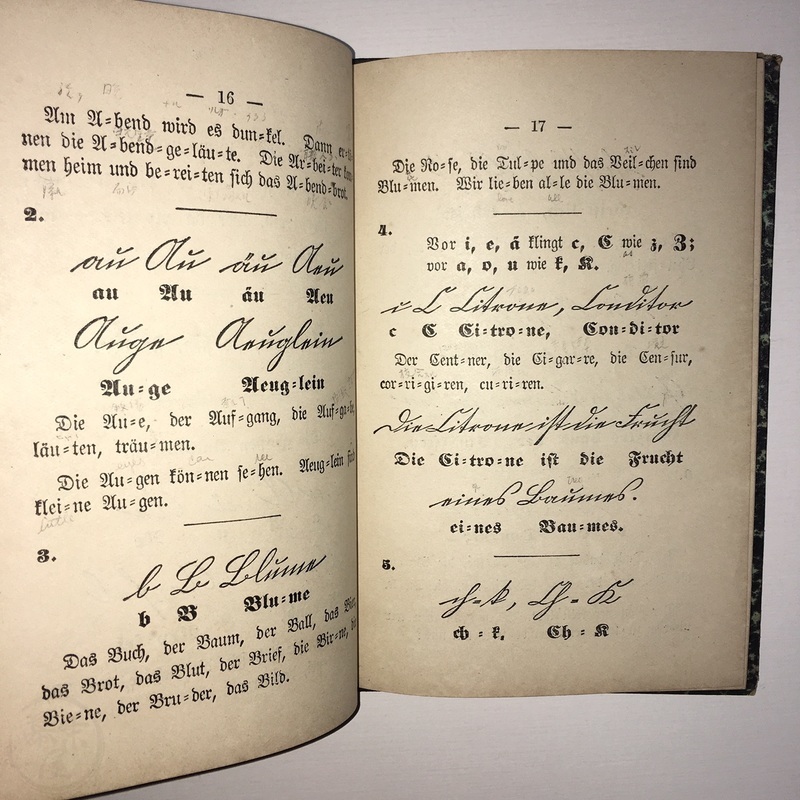 — 16 —
Am A-bend wird es dun-kel. Dann er-tö-
nen die A-bend-ge-läu-te. Die Ar-bei-ter kom-
men heim und be-rei-ten sich das A-bend-brot.
2.
au Au äu Aeu
au Au äu Aeu
Auge Aeuglein
Au-ge Aeug-lein
Die Au-e, der Auf-gang, die Auf-ga-be,
läu-ten, träu-men.
Die Au-gen kön-nen se-hen. Aeug-lein sind
can see
klei-ne Au-gen.
little
3.
b B Blume
b B Blu-me
Das Buch, der Baum, der Ball, das Bier,
das Brot, das Blut, der Brief, die Bir-ne, die
Bie-ne, der Bru-der, das Bild.
— 17 —
Die Ro-se, die Tul-pe und das Veil-chen sind
Blu-men. Wir lie-ben al-le die Blu-men.
love all
4.
Vor i, e, ä klingt c, C wie z, Z;
as
vor a, o, u wie k, K.
c C Citrone, Conditor
c C Ci-tro-ne, Con-di-tor
Der Cent-ner, die Ci-gar-re, die Cen-sur,
cor-ri-gi-ren, cu-ri-ren.
Die Citrone ist die Frucht
Die Ci-tro-ne ist die Frucht
eines Baumes.
ei-nes Bau-mes.
5.
ch-k, Ch-K
ch-k, Ch-K